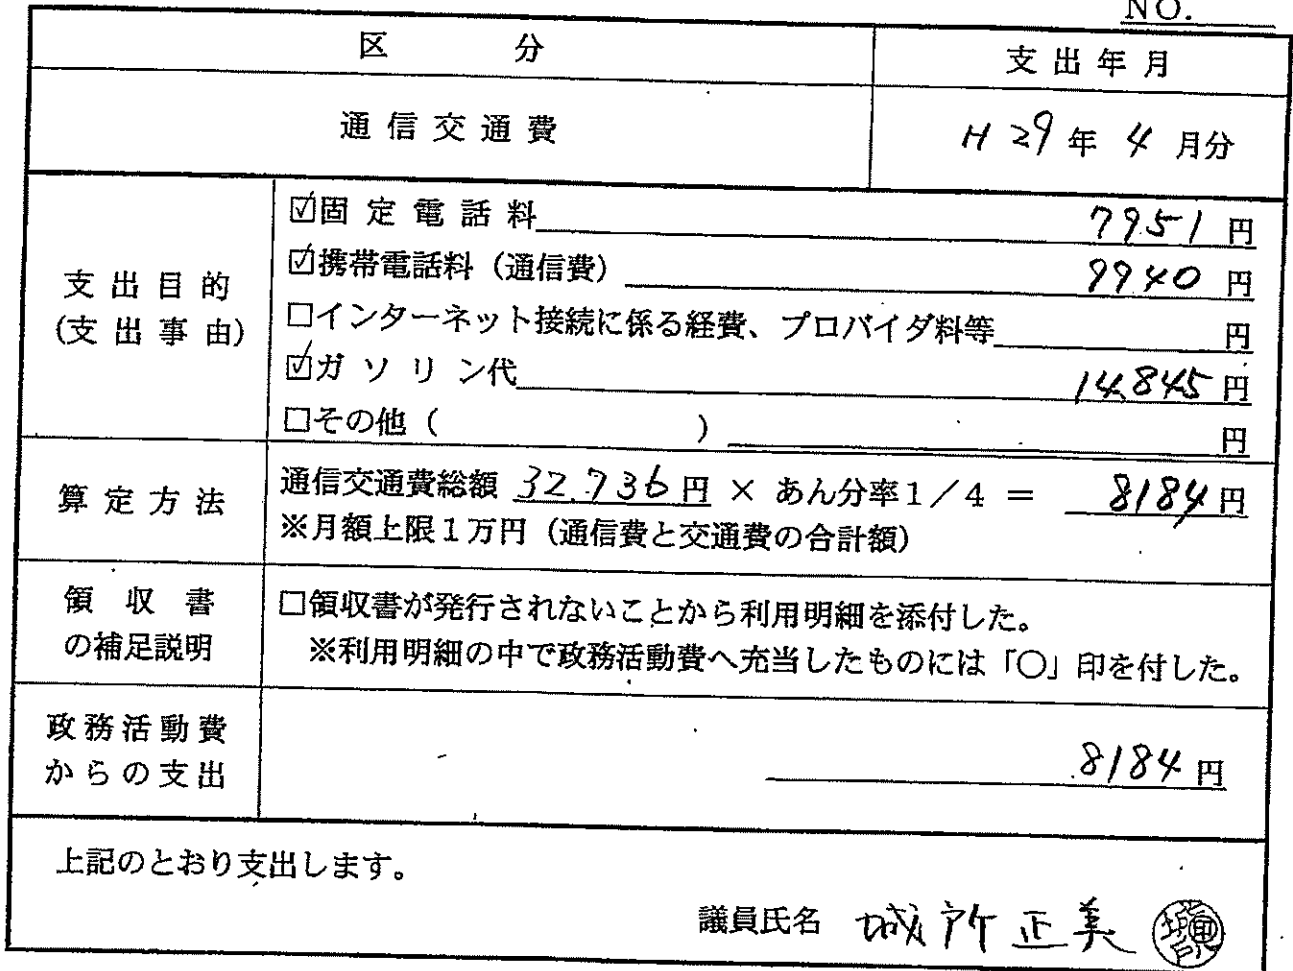 NO.
区 分 支出年月
通信交通費 H29年4月分
支出目的
(支出事由)
☑固定電話料 7951円
☑携帯電話料（通信費） 9940円
□インターネット接続に係る経費、プロバイダ料等 円
☑ガソリン代 14,845円
□その他（ ） 円
算定方法
通信交通費総額 32,736円 × あん分率1／4 ＝ 8184円
※月額上限１万円（通信費と交通費の合計額）
領収書
の補足説明
□領収書が発行されないことから利用明細を添付した。
※利用明細の中で政務活動費へ充当したものには「○」印を付した。
政務活動費
からの支出
8184円
上記のとおり支出します。
議員氏名 城所正美